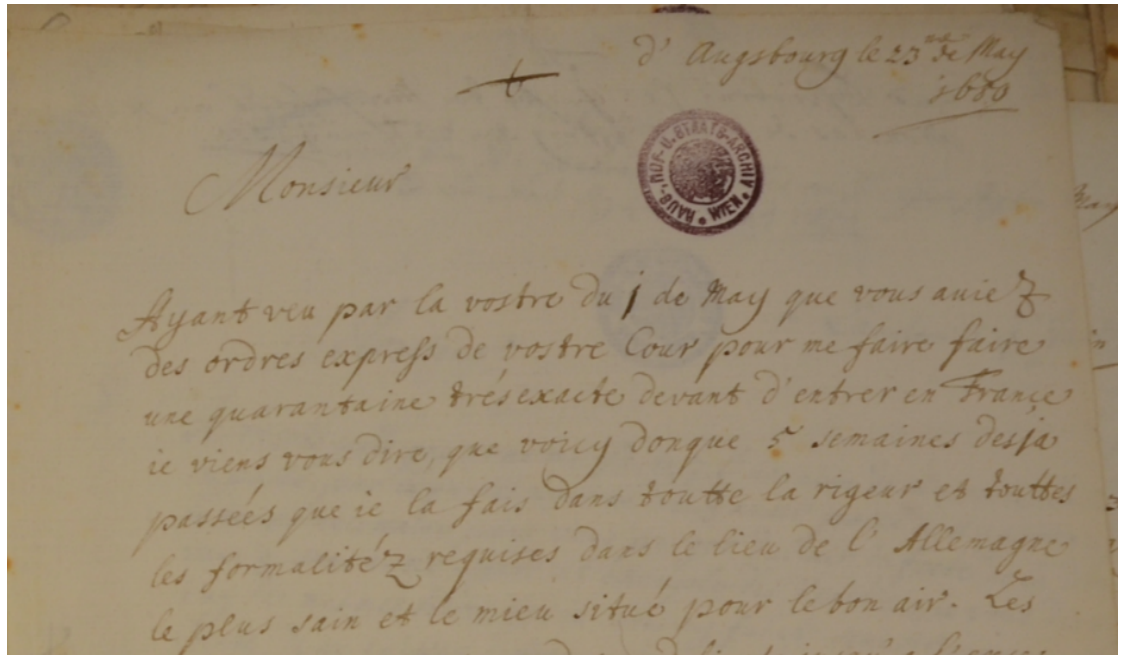 d' Augsbourg le 23me de May
1680
Monsieur
HAUS-, HOF- U. STAATS-ARCHIV WIEN
Ayant veu par la vostre du 1 de May que vous auiez
des ordres express de vostre Cour pour me faire faire
une quarantaine trés exacte devant d'entrer en France
ie viens vous dire, que voicy donque 5 semaines desja
passeés que ie la fais dans toutte la rigeur et touttes
les formalitéz requises dans le lieu de l'Allemagne
le plus sain et le mieu situé pour le bon air. Les
May